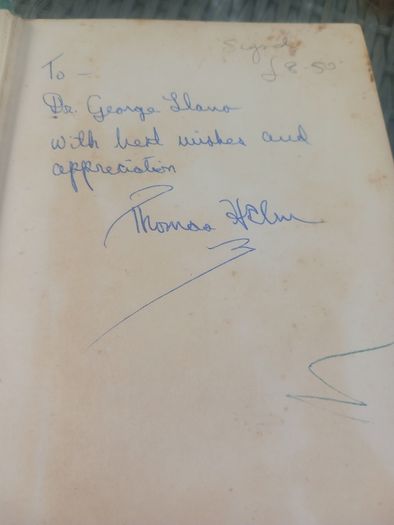 Signed
£8-50
To —
Dr. George Llano
with best wishes and
appreciation
Thomas Helm